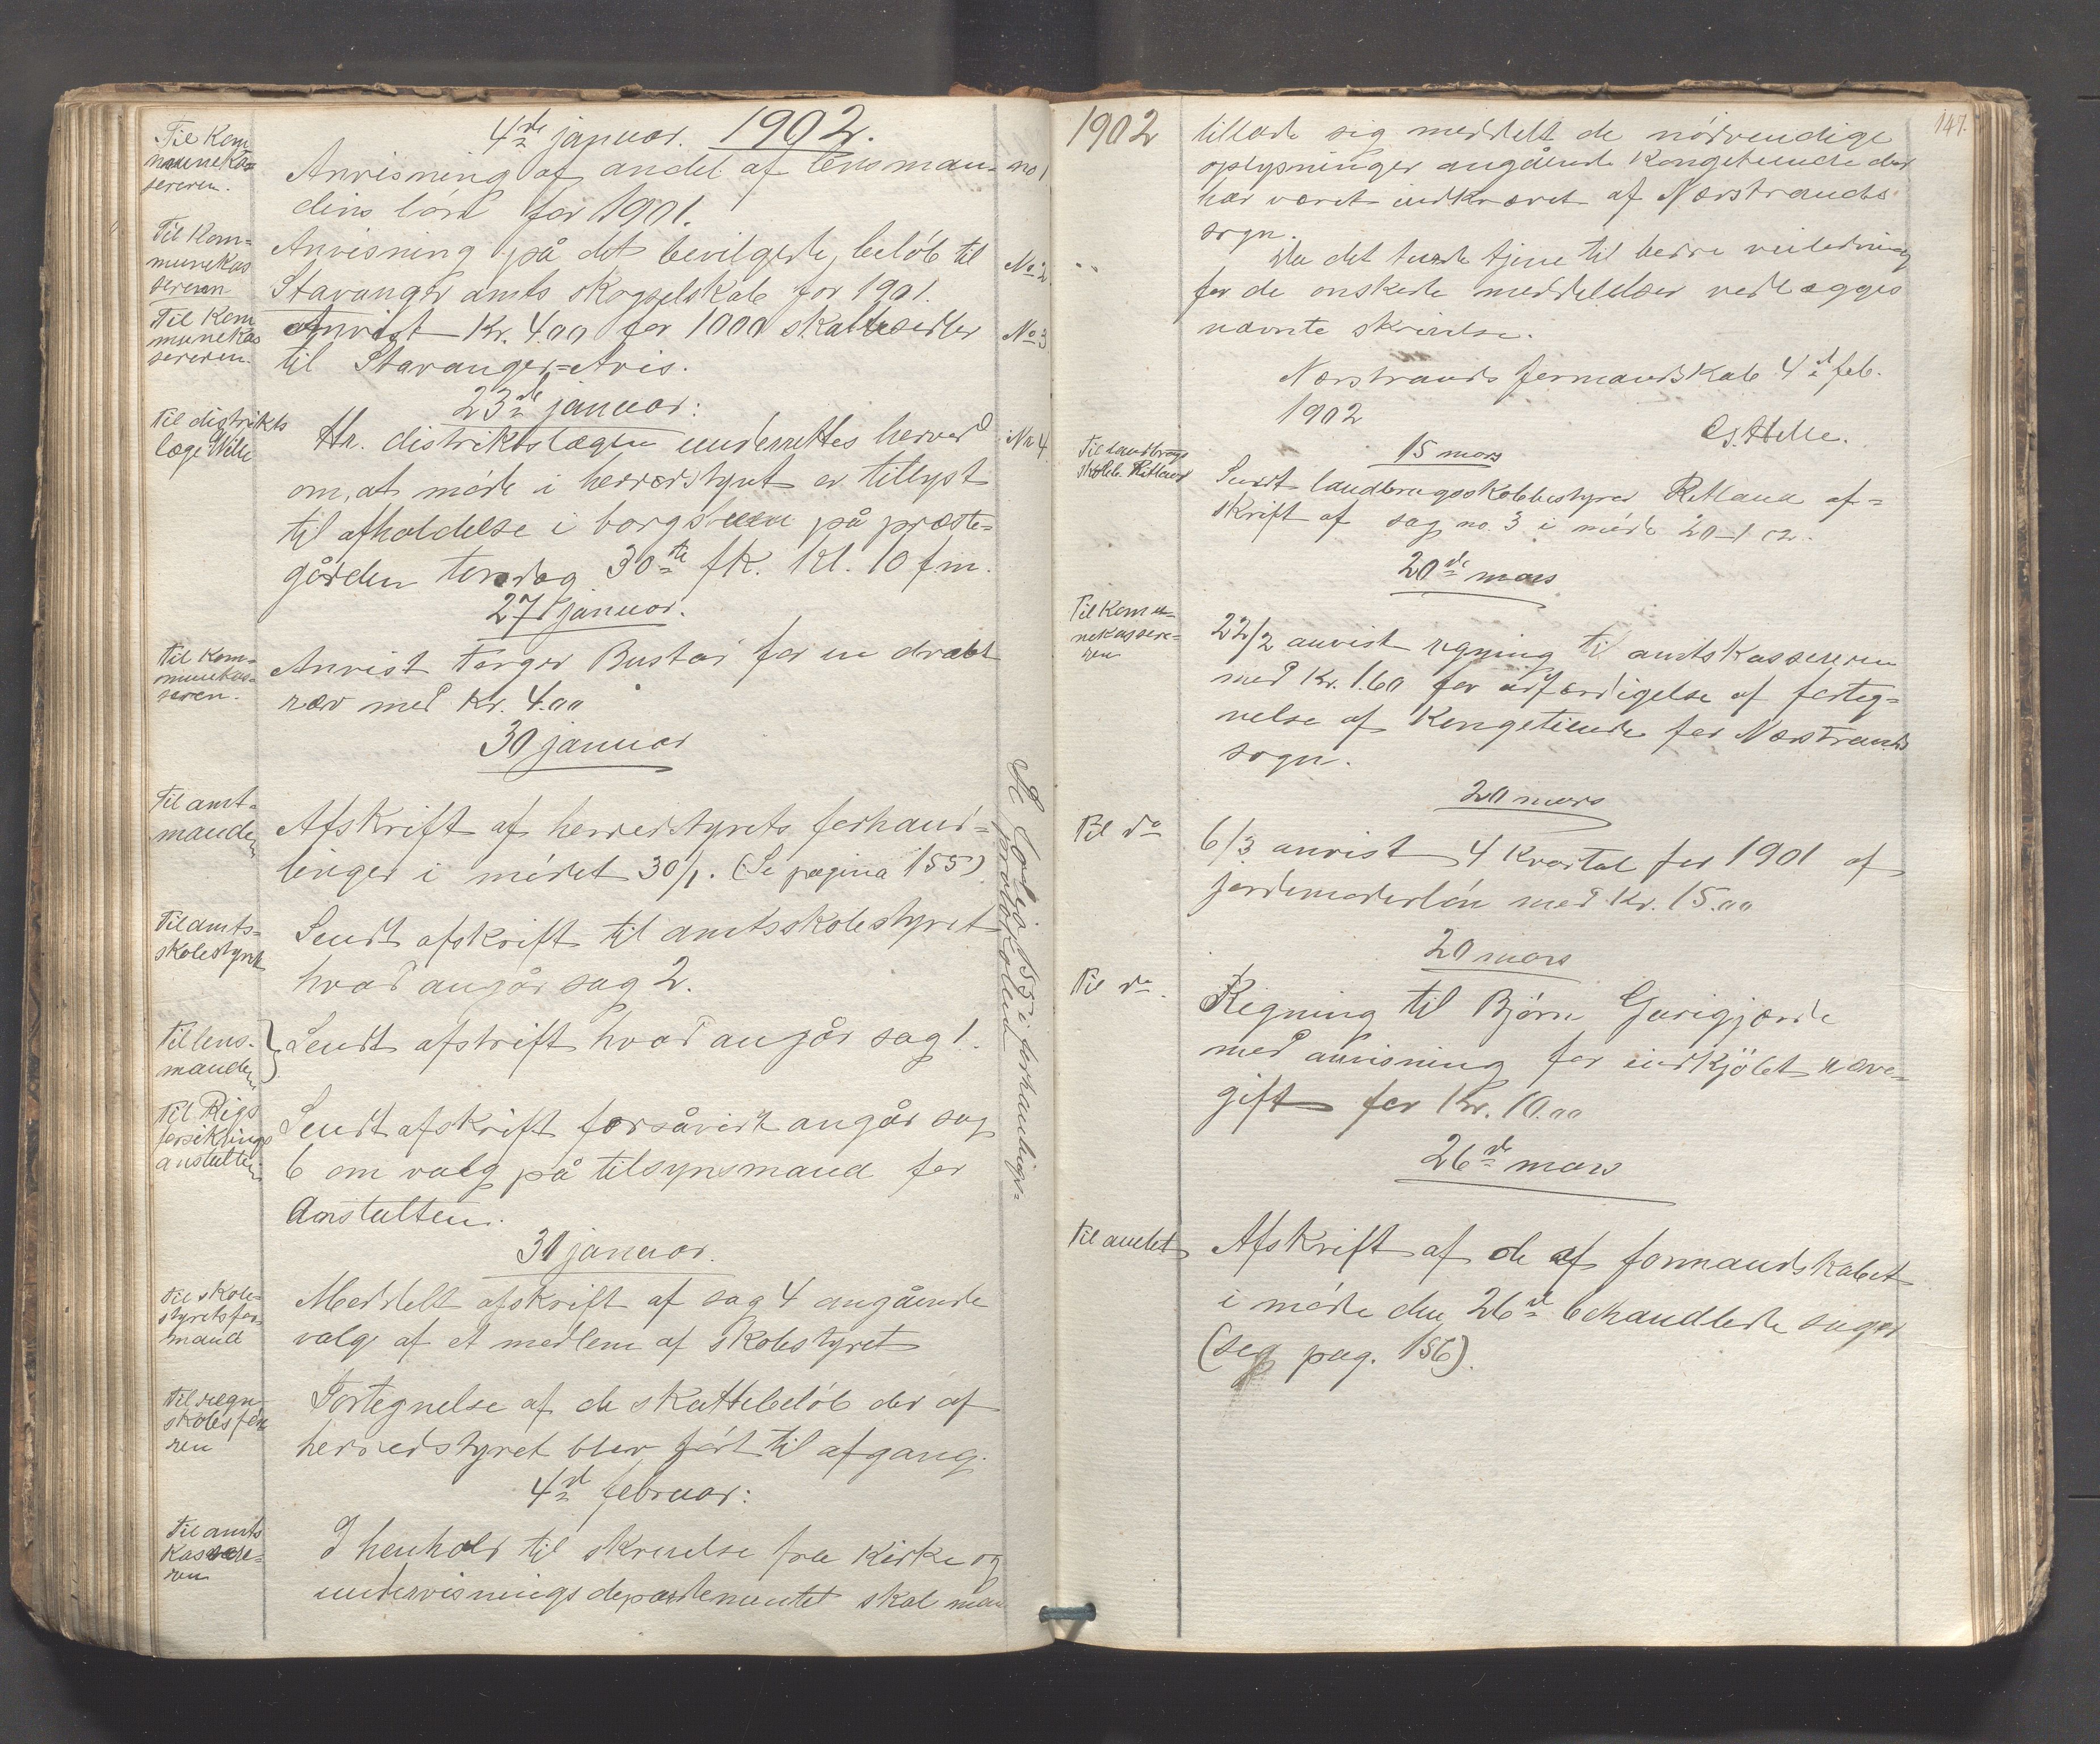 4de januar. 1902.
Til Kom
munekas=
sereren.
Anvisning af andel af lensman= no 1
dens lön for 1901.
Til Kom=
munekas
sereren
Anvisning på det bevilgede belöb til No 2
Stavanger amts skogselskab for 1901.
Til Kom
munekas
sereren.
Anvist Kr. 4.00 for 1000 skattesedler No 3
til Stavanger=Avis.
23de januar:
Til distrikts
læge Wille
Hr. distriktslægen underrettes herved Nr 4.
om, at möde i herredstyret er tillyst
til afholdelse i borgstuen på præste=
gården torsdag 30te fk. Kl. 10 f.m.
27 januar.
Til kom=
munekas=
seren.
Anvist Torger Bustad for en dræbt
ræv med Kr. 4.00
30 januar
Til amt=
manden
Afskrift af herredstyrets forhand=
linger i mödet 30/1. (Se pagina 155)
Til amts=
skolestyret
Sendt afskrift til amtsskolestyret
hvad angår sag 2.
Til lens=
manden
Sendt afskrift hvad angår sag 1.
Til Rigs
forsikrings
anstalten
Sendt afskrift forsåvidt angår sag
6 om valg på tilsynsmand for
Anstalten.
31 januar.
Til skole=
styrets for=
mand
Meddelt afskrift af sag 4 angående
valg af et medlem af skolestyret
Til regn
skabsföre
ren
Fortegnelse af de skattebelöb der af
herredstyret blev fört til afgang.
4de februar:
Til amts
kassere=
ren
I henhold til skrivelse fra Kirke og
undervisningsdepartementet skal man
Se bordet 155 i forhandlings=
protokollen
1902
147.
tillade sig meddelt de nödvendige
oplysninger angående Kongetiende der
har været indkrævet af Nærstrands
sogn.
Da det turde tjene til bedre veiledning
for de onskede meddelelser vedlægges
nævnte skrivelse.
Nærstrands formandskab 4de feb.
1902
G. Helle.
15 mars
Til landbrugs
skoleb. Retland
Sendt landbrugsskolebestyrer Retland af=
skrift af sag no. 3 i möde 20-1 02.
20de mars
Til Kommu=
nekassere=
ren
22/2 anvist regning til amtskassereren
med Kr. 1.60 for udfærdigelse af forteg=
nelse af Kongetiende for Nærstrands
sogn.
20 mars
Til do
6/3 anvist 4 Kvartal for 1901 af
jordemoderlön med Kr. 15.00
20 mars
Til do.
Regning til Björn Gjerigjærde
med anvisning for indkjöbet ræve=
gift for Kr. 10.00
26de mars
Til amtet
Afskrift af de af formandskabet
i möde den 26de behandlede sager
(se pag. 156).